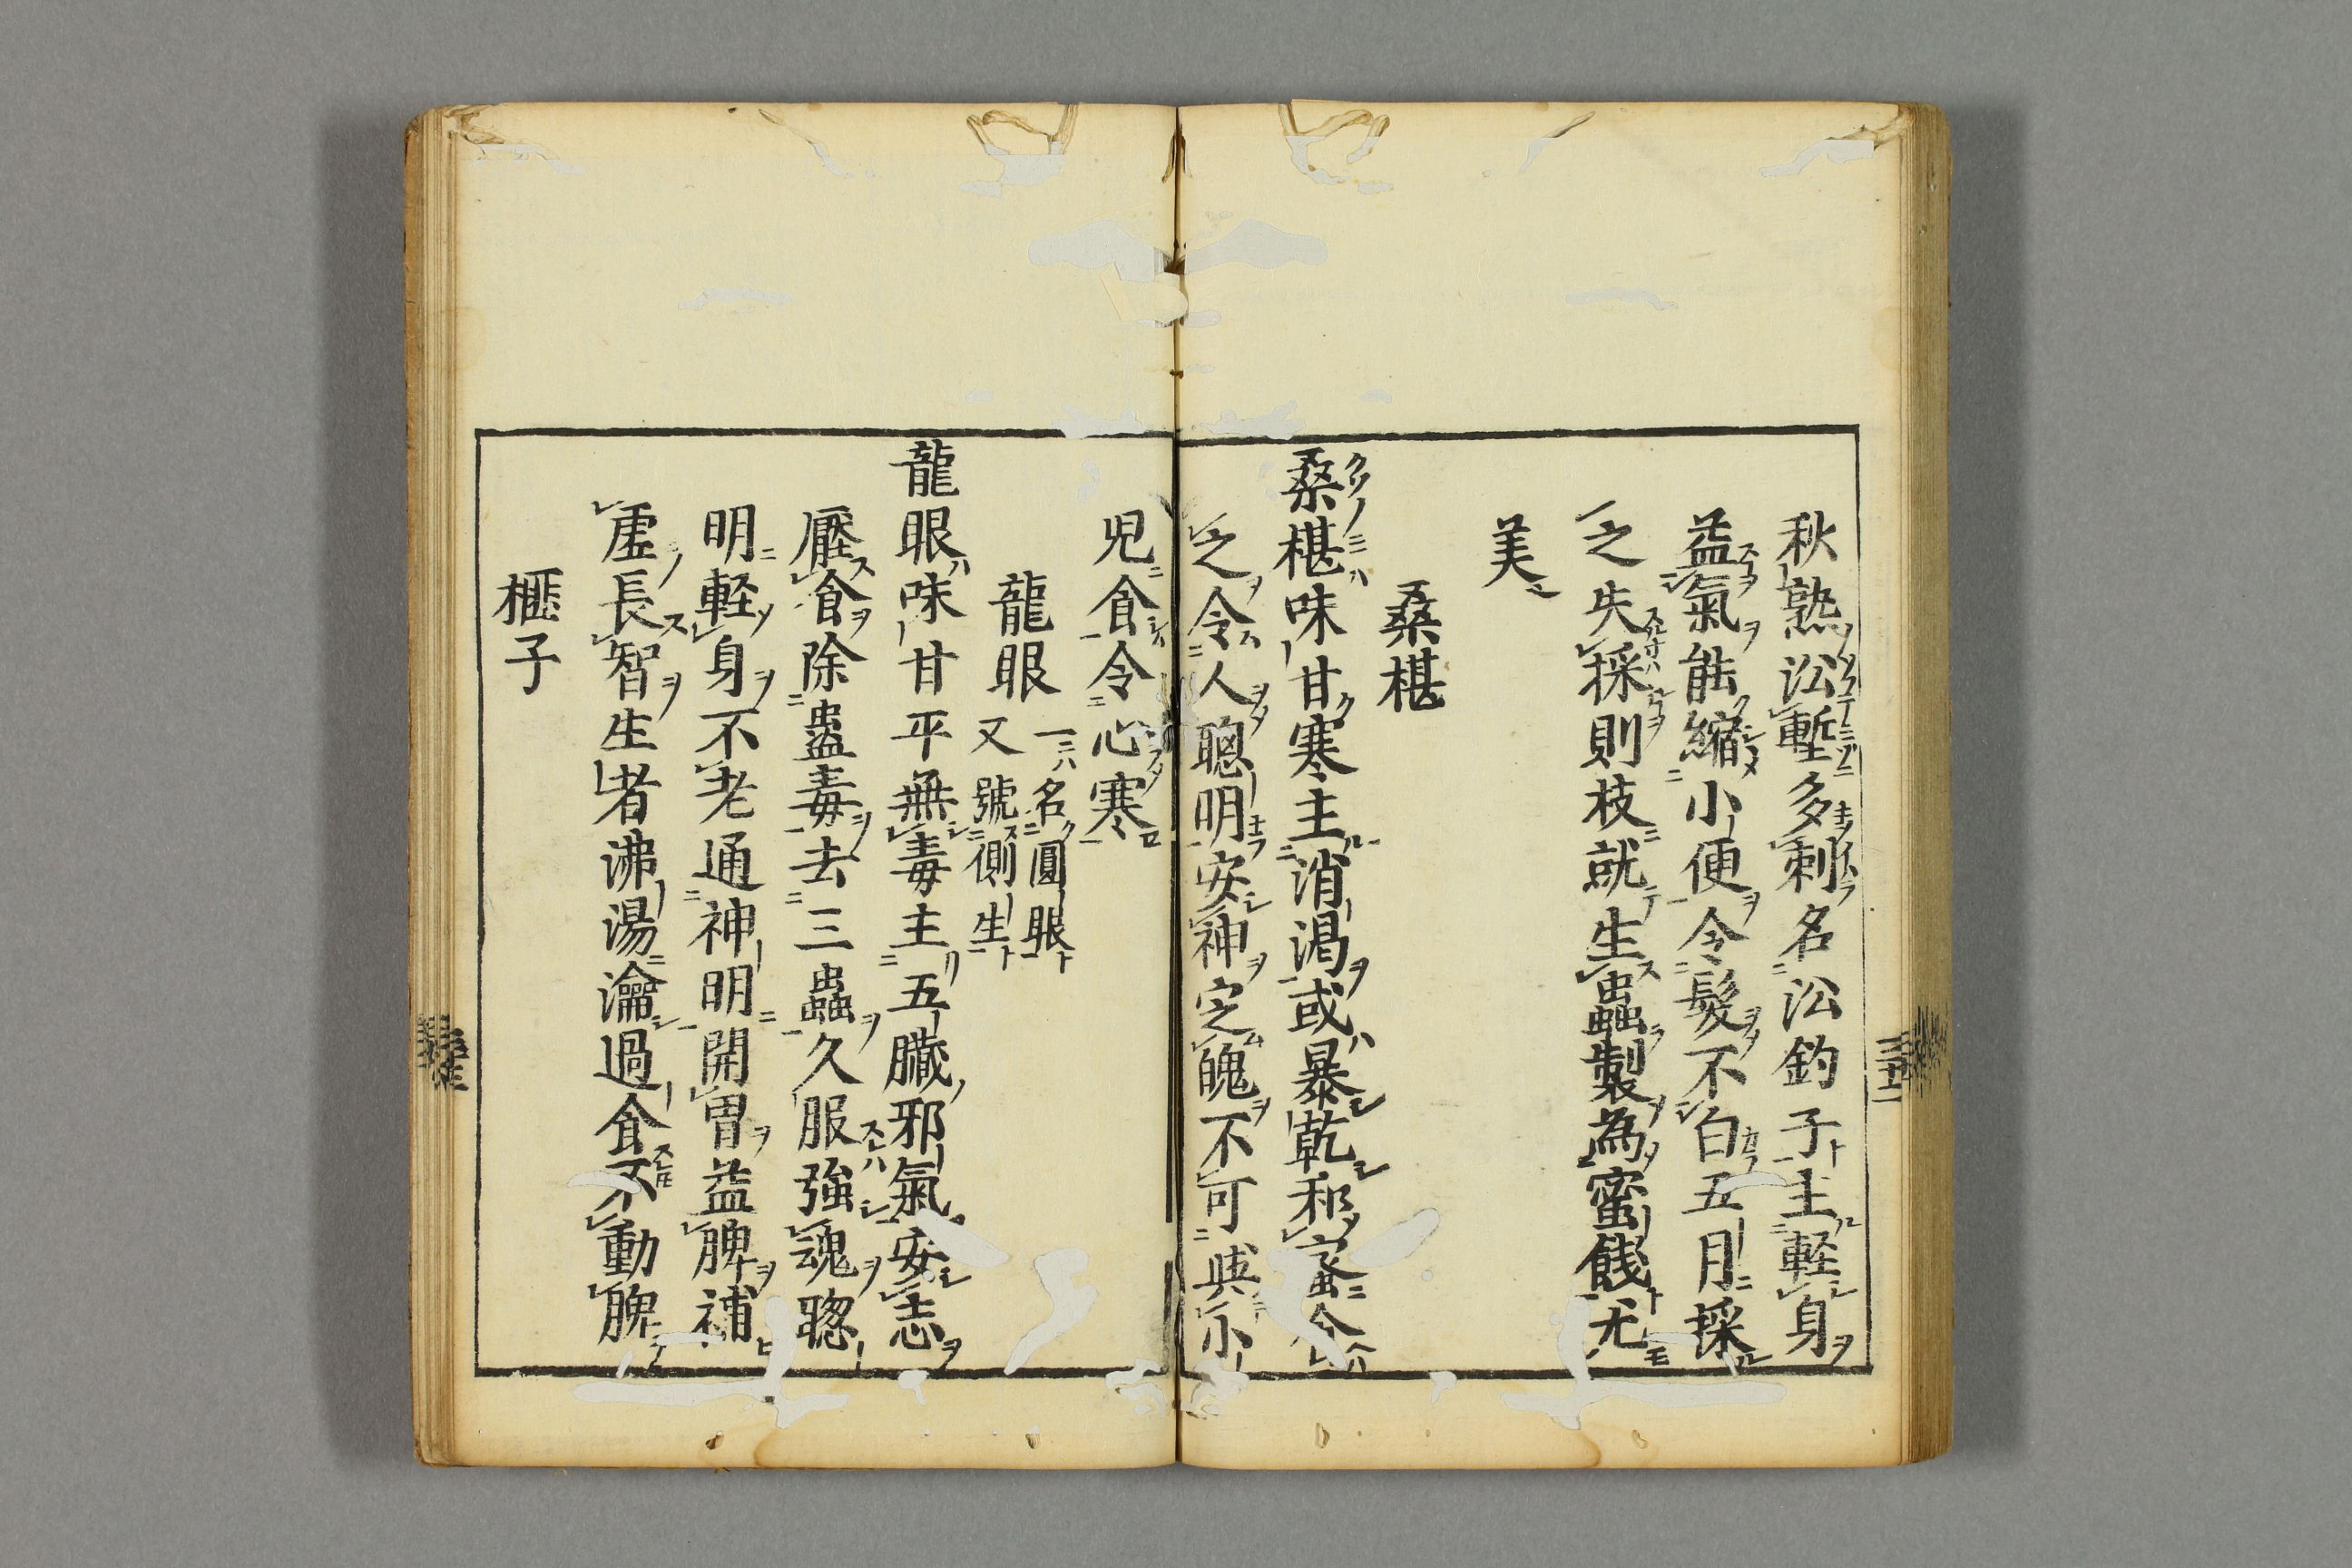 秋熟沁塹多刺名沁鈞子主軽身
益氣能縮小便令髮不白五月採
之失採則枝就生蟲製為蜜餞尤
美
桑椹
桑椹味甘寒主消渴或暴乾和蜜食
之令人聰明安神定魄不可與小
児食令心寒
龍眼 一名圓眼
又號側生
龍眼味甘平無毒主五臓邪氣安志
厭食除蠱毒去三蟲久服強魂聰
明軽身不老通神明開胃益脾補
虛長智生者沸湯瀹過食不動脾
榧子